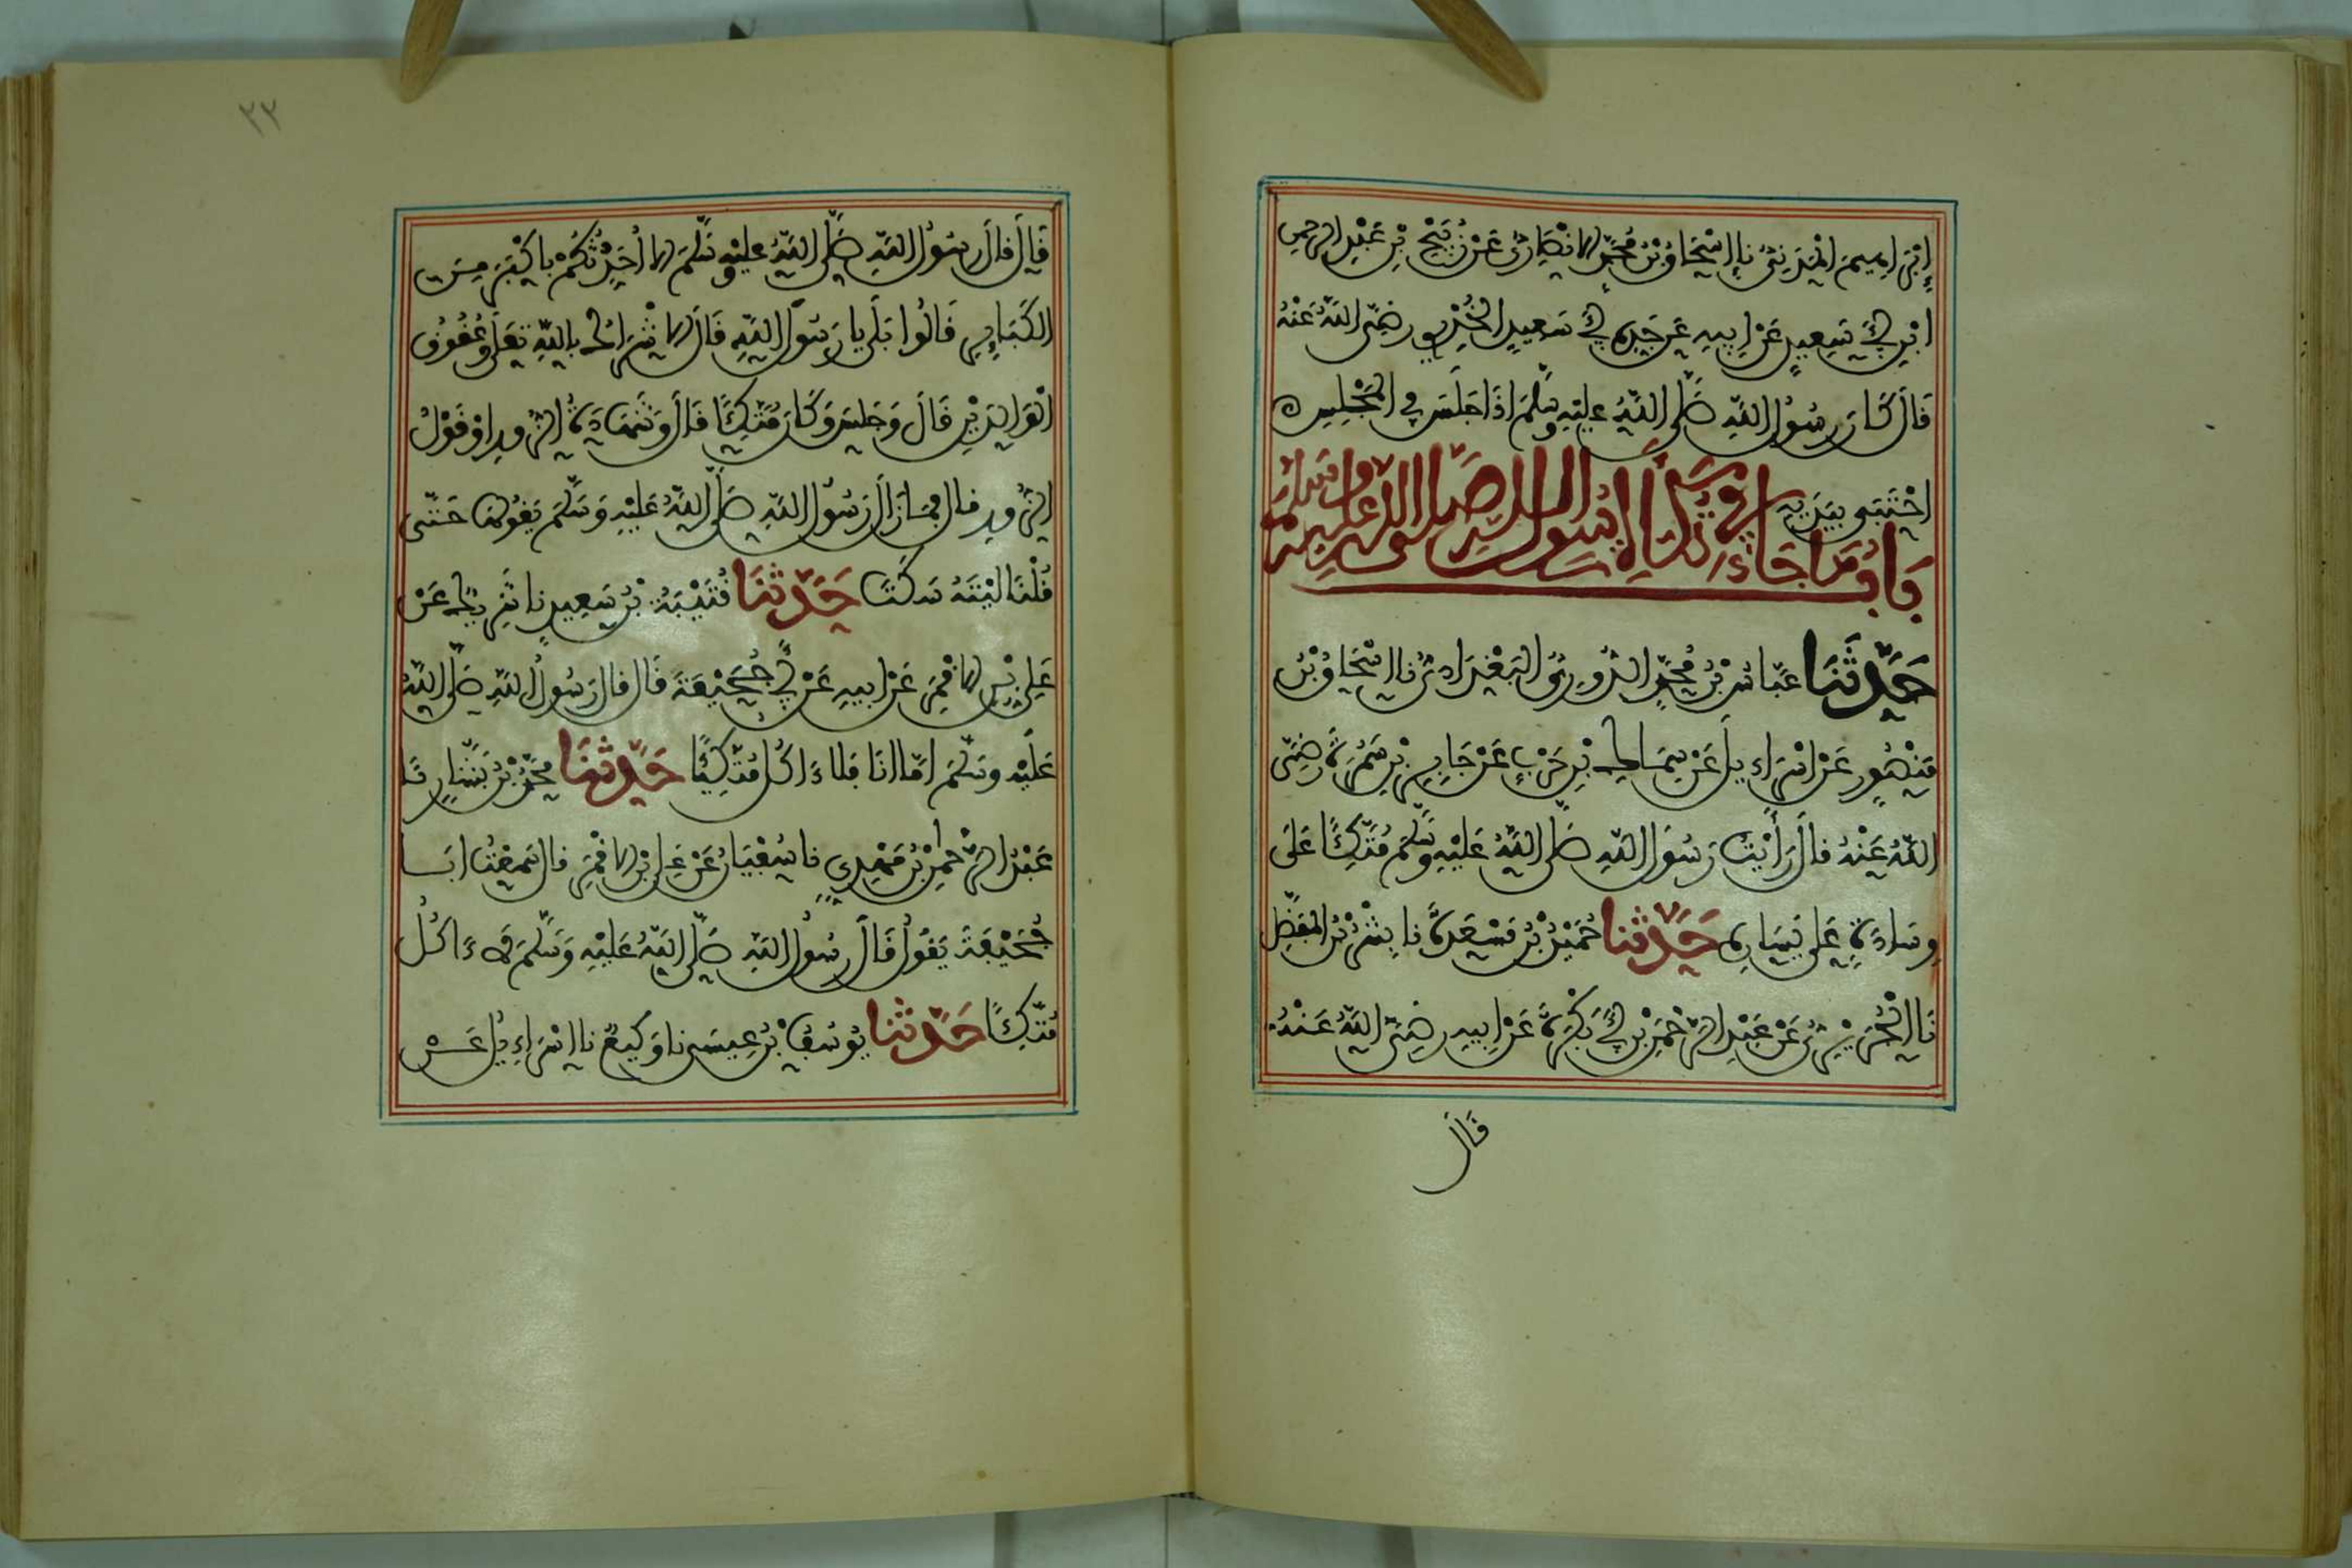 إبراهيم المدني نا إسحاق بن محمد الانصاري عن ربيح بن عبد الرحمن
ابن أبي سعيد عن ابيه عن جده أبي سعيد الخدري رضي الله عنه
قال كان رسول الله صلى الله عليه وسلم اذا جلس في المجلس
احتبى بيديه
باب ما جاء في تكأة رسول الله صلى الله عليه وسلم
حدثنا عباس بن محمد الدوري البغدادي نا اسحاق بن
منصور عن اسراءيل عن سماك بن حرب عن جابر بن سمرة رضي
الله عنه قال رأيت رسول الله صلى الله عليه وسلم متكئا على
وسادة على يساره حدثنا حميد بن مسعدة نا بشر بن المفضل
نا الجريري عن عبد الرحمن بن أبي بكرة عن ابيه رضي الله عنه
قال
٢٢
قال قال رسول الله صلى الله عليه وسلم الا أحدثكم باكبر من
الكباير قالوا بلى يا رسول الله قال الاشراك بالله تعلى وعقوق
الوالدين قال وجلس وكان متكئا قال وشهادة الزور او قول
الزور قال فما زال رسول الله صلى الله عليه وسلم يقولها حتى
قلنا ليته سكت حدثنا قتيبة بن سعيد نا شريك عن
علي بن الاقمر عن ابيه عن أبي جحيفة قال قال رسول الله صلى الله
عليه وسلم اما انا فلا ءاكل متكئا حدثنا محمد بن بشار نا
عبد الرحمن بن مهدي نا سفيان عن علي بن الاقمر قال سمعت ابا
جحيفة يقول قال رسول الله صلى الله عليه وسلم لا ءاكل
متكئا حدثنا يوسف بن عيسى نا وكيع نا اسراءيل عن